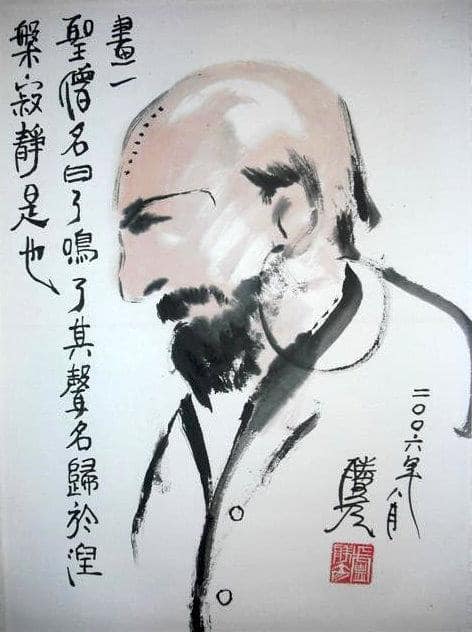 畫一
聖僧名曰了鳴了其聲名歸於涅
槃寂靜是也
二〇〇六年八月